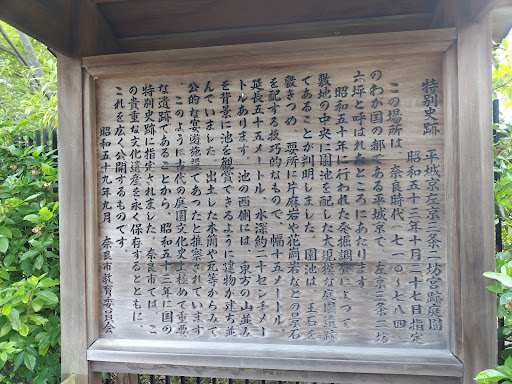 特別史跡 平城京左京三条二坊宮跡庭園
昭和五十三年十二月二十七日指定
この場所は、奈良時代(七一〇〜七八四)
のわが国の都である平城京で、左京三条二坊
六坪と呼ばれたところにあたります。
昭和五十年に行われた発掘調査によって、
敷地の中央に園池を配した大規模な庭園遺跡
であることが判明しました。園池は、玉石を
敷きつめ、要所に片麻岩や花崗岩などの景石
を配する技巧的なもので、幅十五メートル、
延長五十五メートル、水深約二十センチメー
トルあります。池の西側には、東方の山並み
を背景に池を観賞できるように建物が建ち並
んでいました。出土した木簡や瓦等からみて
公的な宴遊施設であったと推察されています。
このように古代の庭園文化史上極めて重要
な遺跡であることから、昭和五十三年に国の
特別史跡に指定されました。奈良市では、こ
の貴重な文化遺産を永く保存するとともに、
これを広く公開するものです。
昭和五十九年九月 奈良市教育委員会